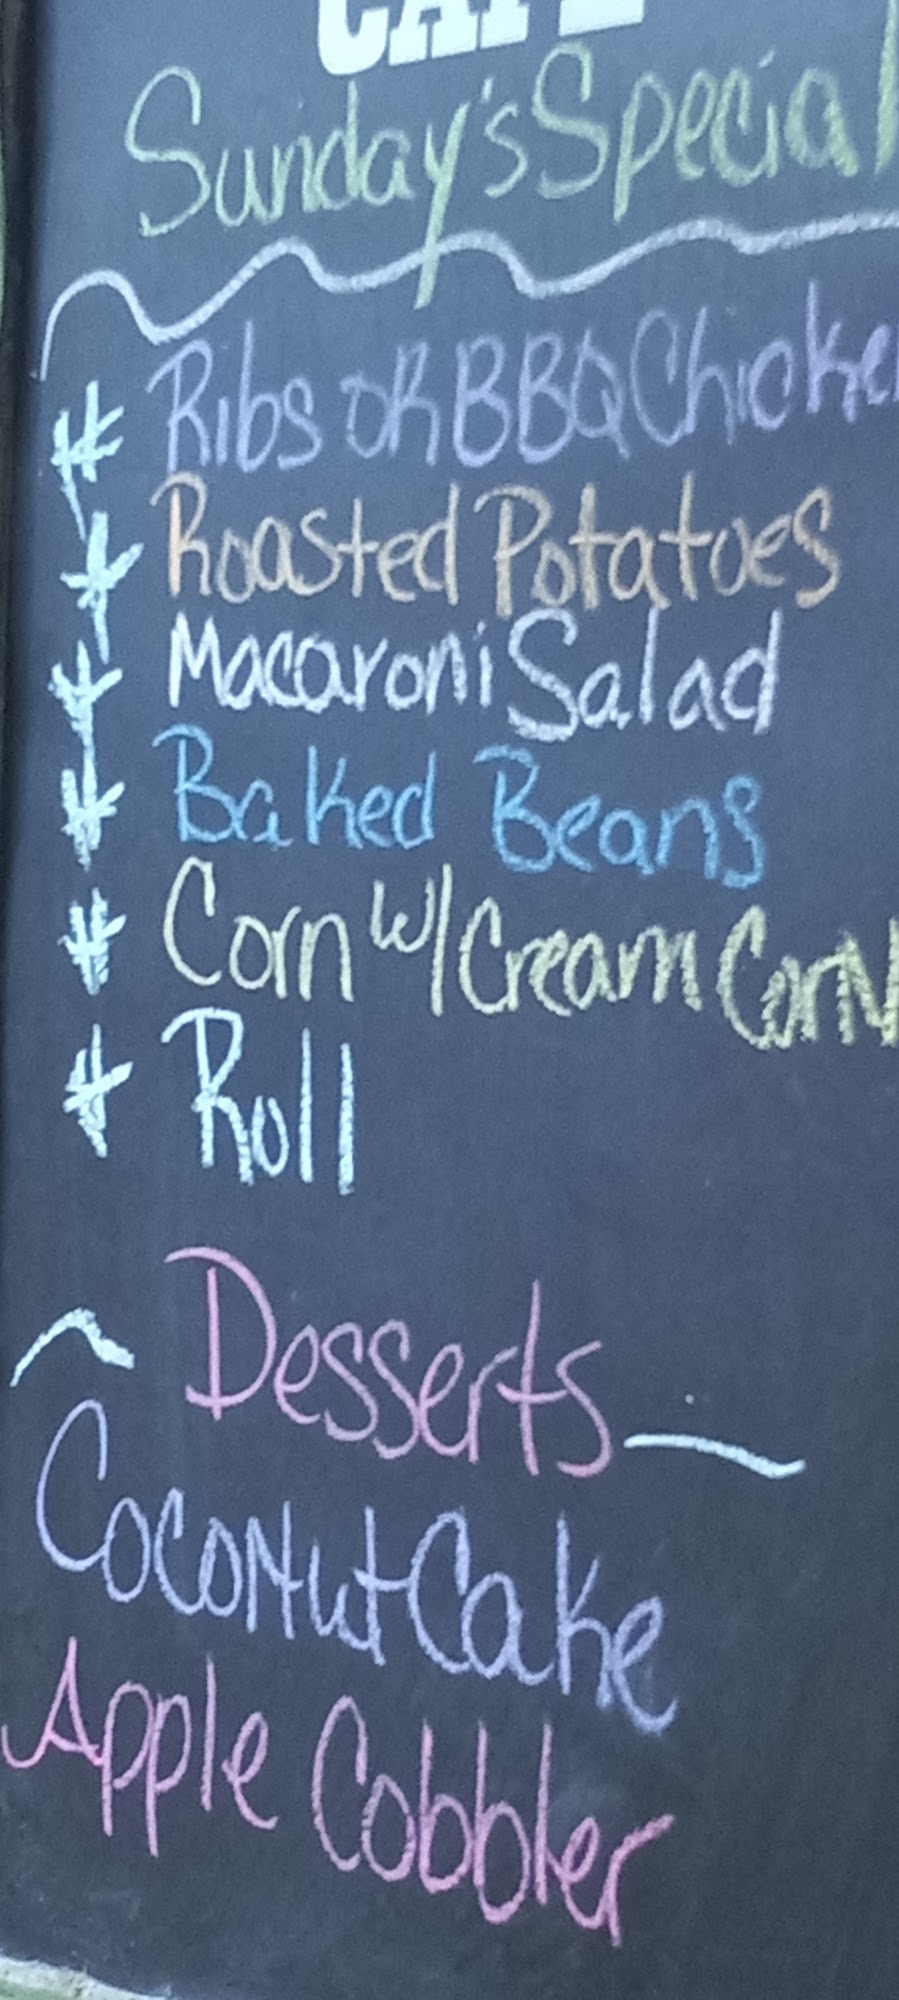 CAFE
Sunday's Special
Ribs OR BBQ Chicken
Roasted Potatoes
Macaroni Salad
Baked Beans
Corn w/ Cream Corn
Roll
Desserts
Coconut Cake
Apple Cobbler